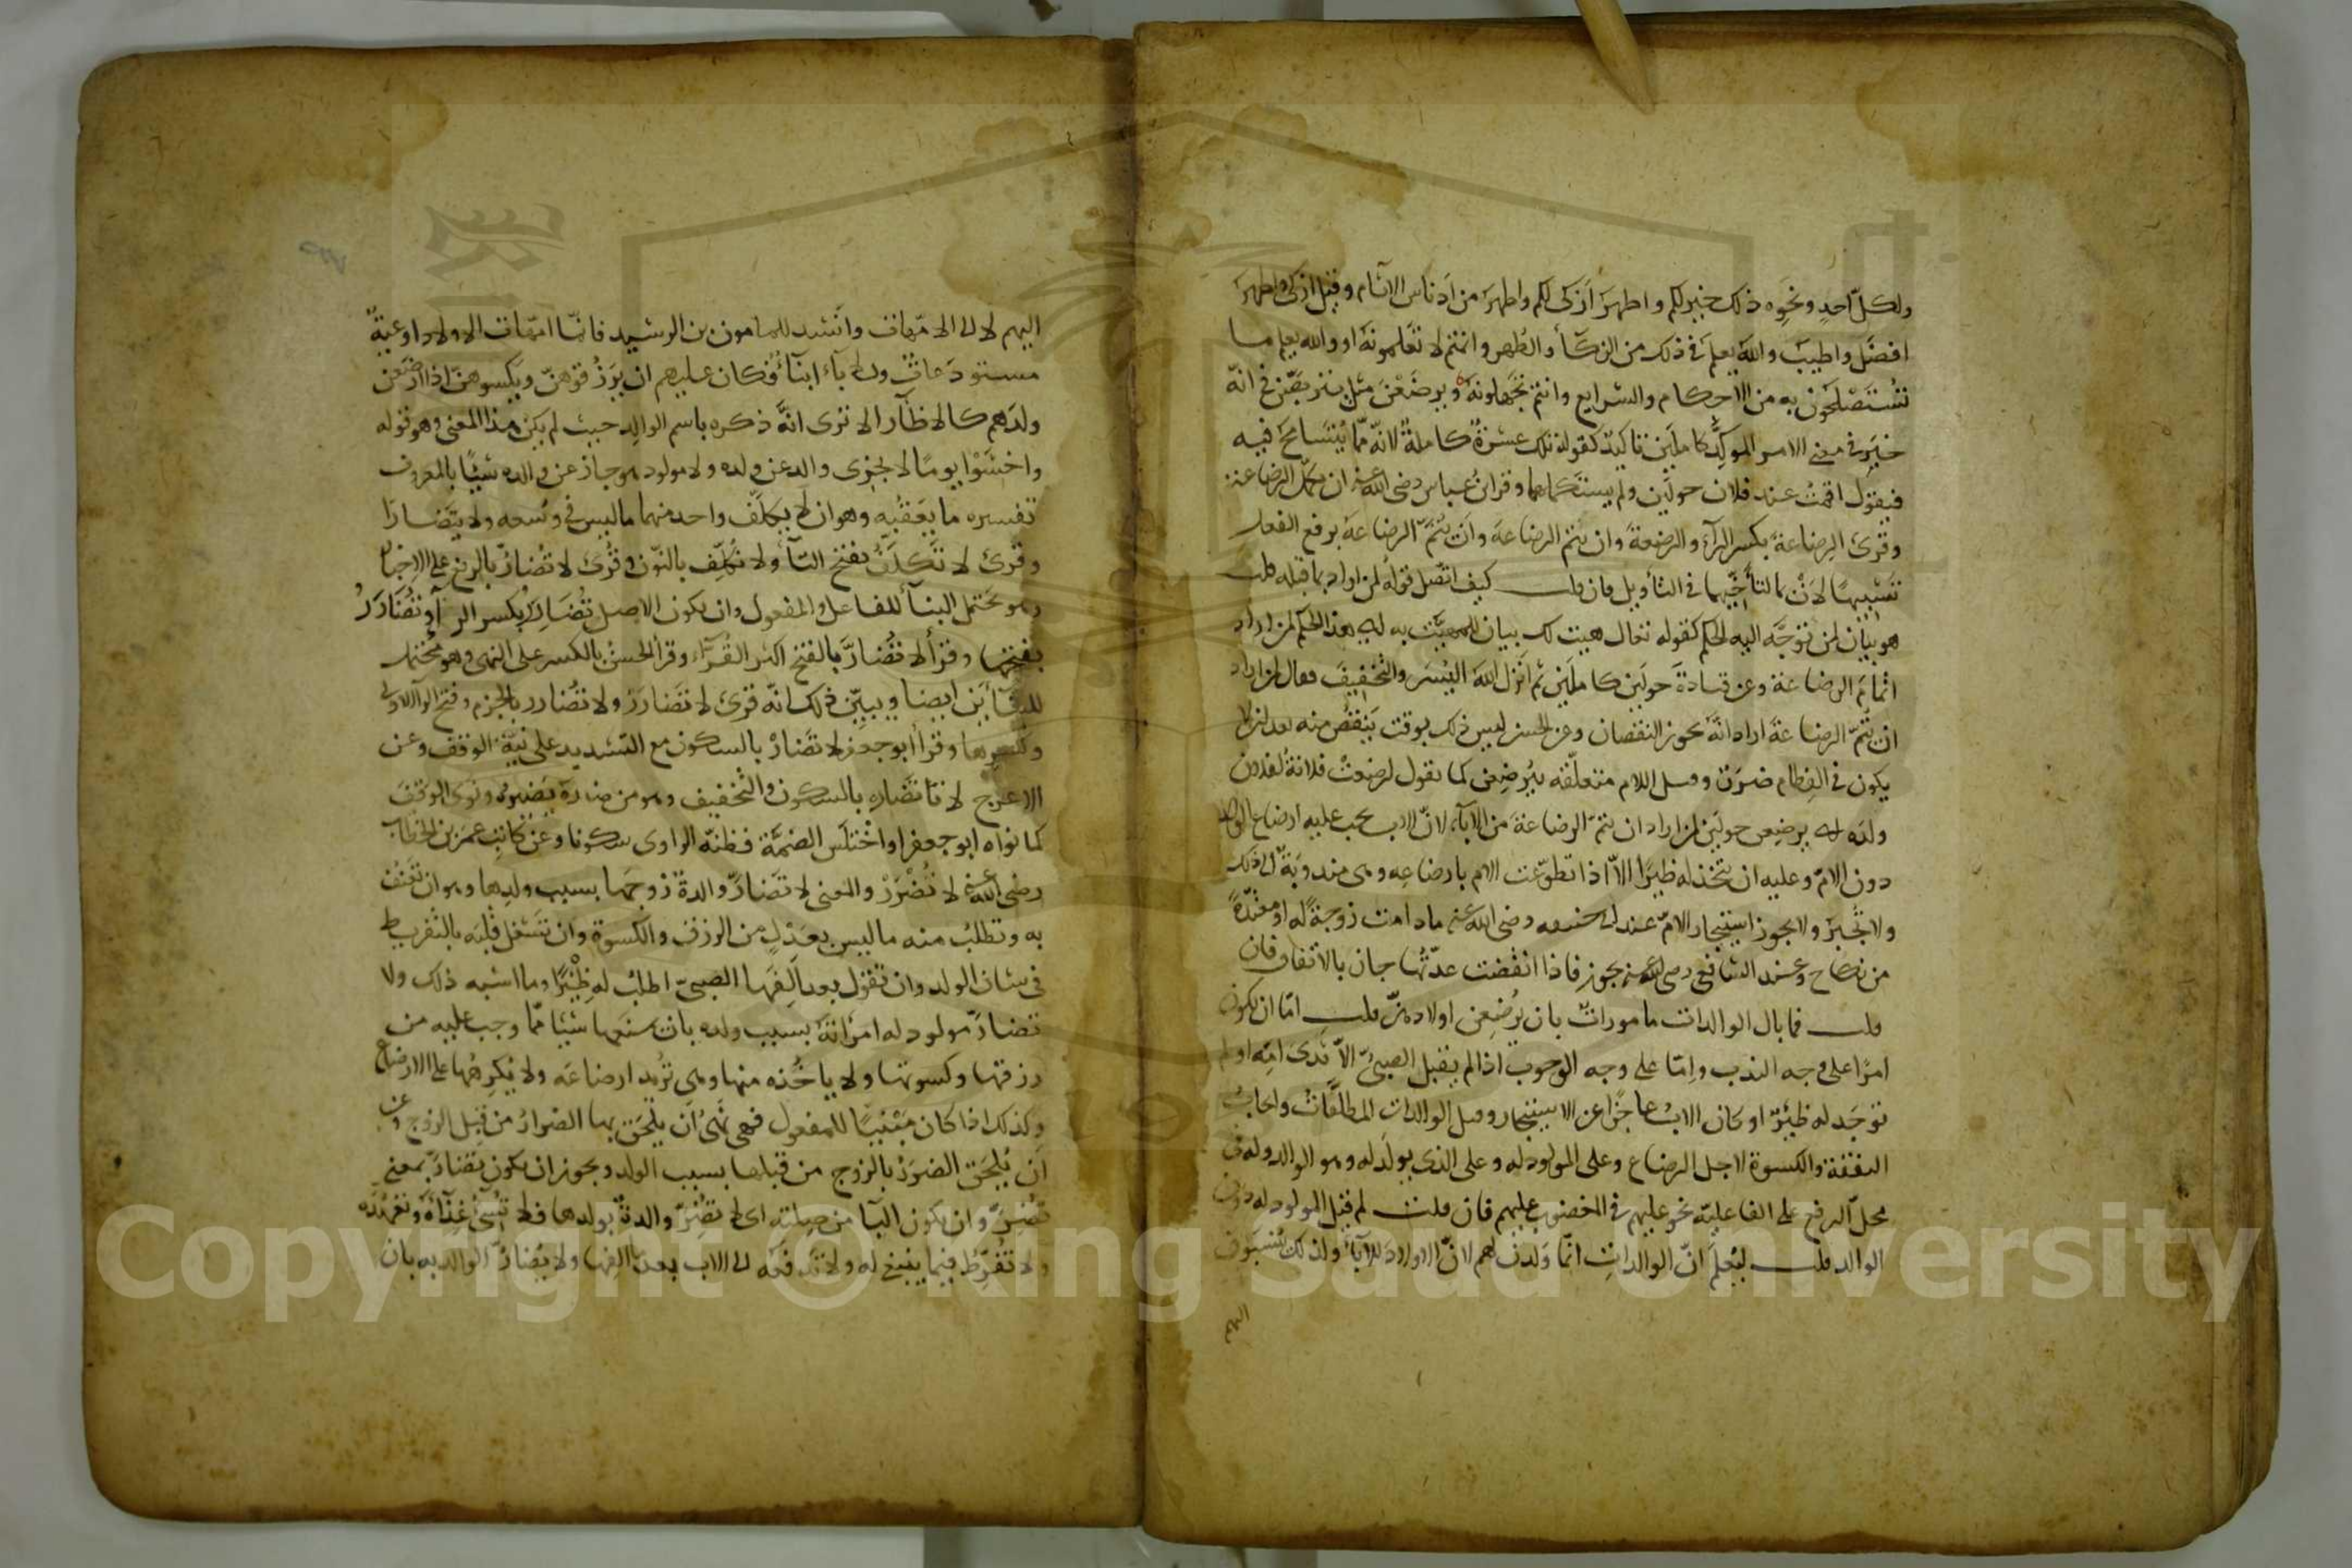 ولكل احد ونحوه ذلك خير لكم واطهر ازكى لكم واطهر من ادناس الآثام وقيل ازكى واطهر
افضل واطيب والله يعلم ما في ذلك من الزكاء والطهر وانتم لا تعلمونه او والله يعلم ما
تستصلحون به من الاحكام والشرايع وانتم تجهلونه ويرضعن مثل يتربصن في انه
خبر في معنى الامر الموكد كاملين تاكيد كقوله تلك عشرة كاملة لانه مما يتسامح فيه
فيقول اقمت عند فلان حولين ولم يستكملهما وقرا ابن عباس رضى الله عنه ان يكمل الرضاعة
وقرئ الرضاعة بكسر الرآء والرضعة وان تتم الرضاعة وان يتم الرضاعة برفع الفعل
تشبيها لان بما لتأخيهما في التأويل فان قلت كيف اتصل قوله لمن اراد بما قبله قلت
هو بيان لمن توجه اليه الحكم كقوله تعال هيت لك بيان للمهيت به اى هذا الحكم لمن اراد
اتمام الرضاعة وعن قتادة حولين كاملين ثم انزل الله اليسر والتخفيف فقال لمن اراد
ان يتم الرضاعة اراد انه يجوز النقصان وعن الحسن ليس ذلك بوقت ينقص منه بعد ان لا
يكون في الفطام ضرر وقيل اللام متعلقه بيرضعن كما تقول ارضعت فلانة لفلان
ولده اى يرضعن حولين لمن اراد ان يتم الرضاعة من الآباء لان الاب يجب عليه ارضاع الولد
دون الام وعليه ان يتخذ له ظئرا الا اذا تطوعت الام بارضاعه وهى مندوبة الى ذلك
ولا تجبر ولا يجوز استيجار الام عند ابى حنيفه رضى الله عنه ما دامت زوجة له او معتدة
من نكاح وعند الشافعى رضى الله عنه يجوز فاذا انقضت عدتها جاز بالاتفاق فان
قلت فما بال الوالدات مامورات بان يرضعن اولادهن قلت اما ان يكون
امرا على وجه الندب واما على وجه الوجوب اذا لم يقبل الصبى الا ثدى امه او لم
توجد له ظئر او كان الاب عاجزا عن الاستيجار وقيل الوالدات المطلقات وايجاب
النفقة والكسوة لاجل الرضاع وعلى المولود له وعلى الذى يولد له وهو الوالد وله في
محل الرفع على الفاعلية نحو عليهم في المغضوب عليهم فان قلت لم قيل المولود له دون
الوالد قلت ليعلم ان الوالدات انما ولدن لهم لان الاولاد للآباء ولذلك ينسبون
اليهم
اليهم لا الى الامهات وانشد للمامون بن الرشيد فانما امهات الاولاد اوعية
مستودعات وللآباء ابناء فكان عليهم ان يرزقوهن ويكسوهن اذا ارضعن
ولدهم كالاظآر الا ترى انه ذكره باسم الوالد حيث لم يكن هذا المعنى وهو قوله
واخشوا يوما لا يجزى والد عن ولده ولا مولود هو جاز عن والده شيئا بالمعروف
تفسيره ما يعقبه وهو ان لا يكلف واحد منهما ما ليس في وسعه ولا يتضارا
وقرئ لا تكلف بفتح التآء ولا نكلف بالنون وقرئ لا تضار بالرفع على الاخبار
وهو يحتمل البنآء للفاعل والمفعول وان يكون الاصل تضارر بكسر الرآء وتضارر
بفتحها وقرأ لا تضار بالفتح اكثر القرآء وقرا الحسن بالكسر على النهى وهو محتمل
للبنائين ايضا ويبين ذلك انه قرئ لا تضارر ولا تضارر بالجزم وفتح الرآ الاولى
وكسرها وقرا ابو جعفر لا تضار بالسكون مع التشديد على نية الوقف وعن
الاعرج لا تضار بالسكون والتخفيف وهو من ضاره يضيره ونوى الوقف
كما نواه ابو جعفر او اختلس الضمة فظنه الراوى سكونا وعن كاتب عمر بن الخطاب
رضى الله عنه لا تضرر والمعنى لا تضار والدة زوجها بسبب ولدها وهو ان تعنف
به وتطلب منه ما ليس بعدل من الرزق والكسوة وان تشغل قلبه بالتفريط
في شان الولد وان تقول بعد ما الفها الصبى اطلب له ظئرا وما اشبه ذلك ولا
تضار مولود له امراته بسبب ولده بان يمنعها شيئا مما وجب عليه من
رزقها وكسوتها ولا ياخذه منها وهى تريد ارضاعه ولا يكرهها على الارضاع
وكذلك اذا كان مبنيا للمفعول فهى نهى ان يلحق بها الضرار من قبل الزوج وعن
ان يلحق الضرر بالزوج من قبلها بسبب الولد ويجوز ان يكون تضار بمعنى
تضر وان يكون البآ من صلته اى لا تضر والدة بولدها فلا تسئ غذآءه وتعهده
ولا تفرط فيما ينبغى له ولا تدفعه الى الاب بعد ما الفها ولا يضار الوالد به بان
Copyright © King Saud University